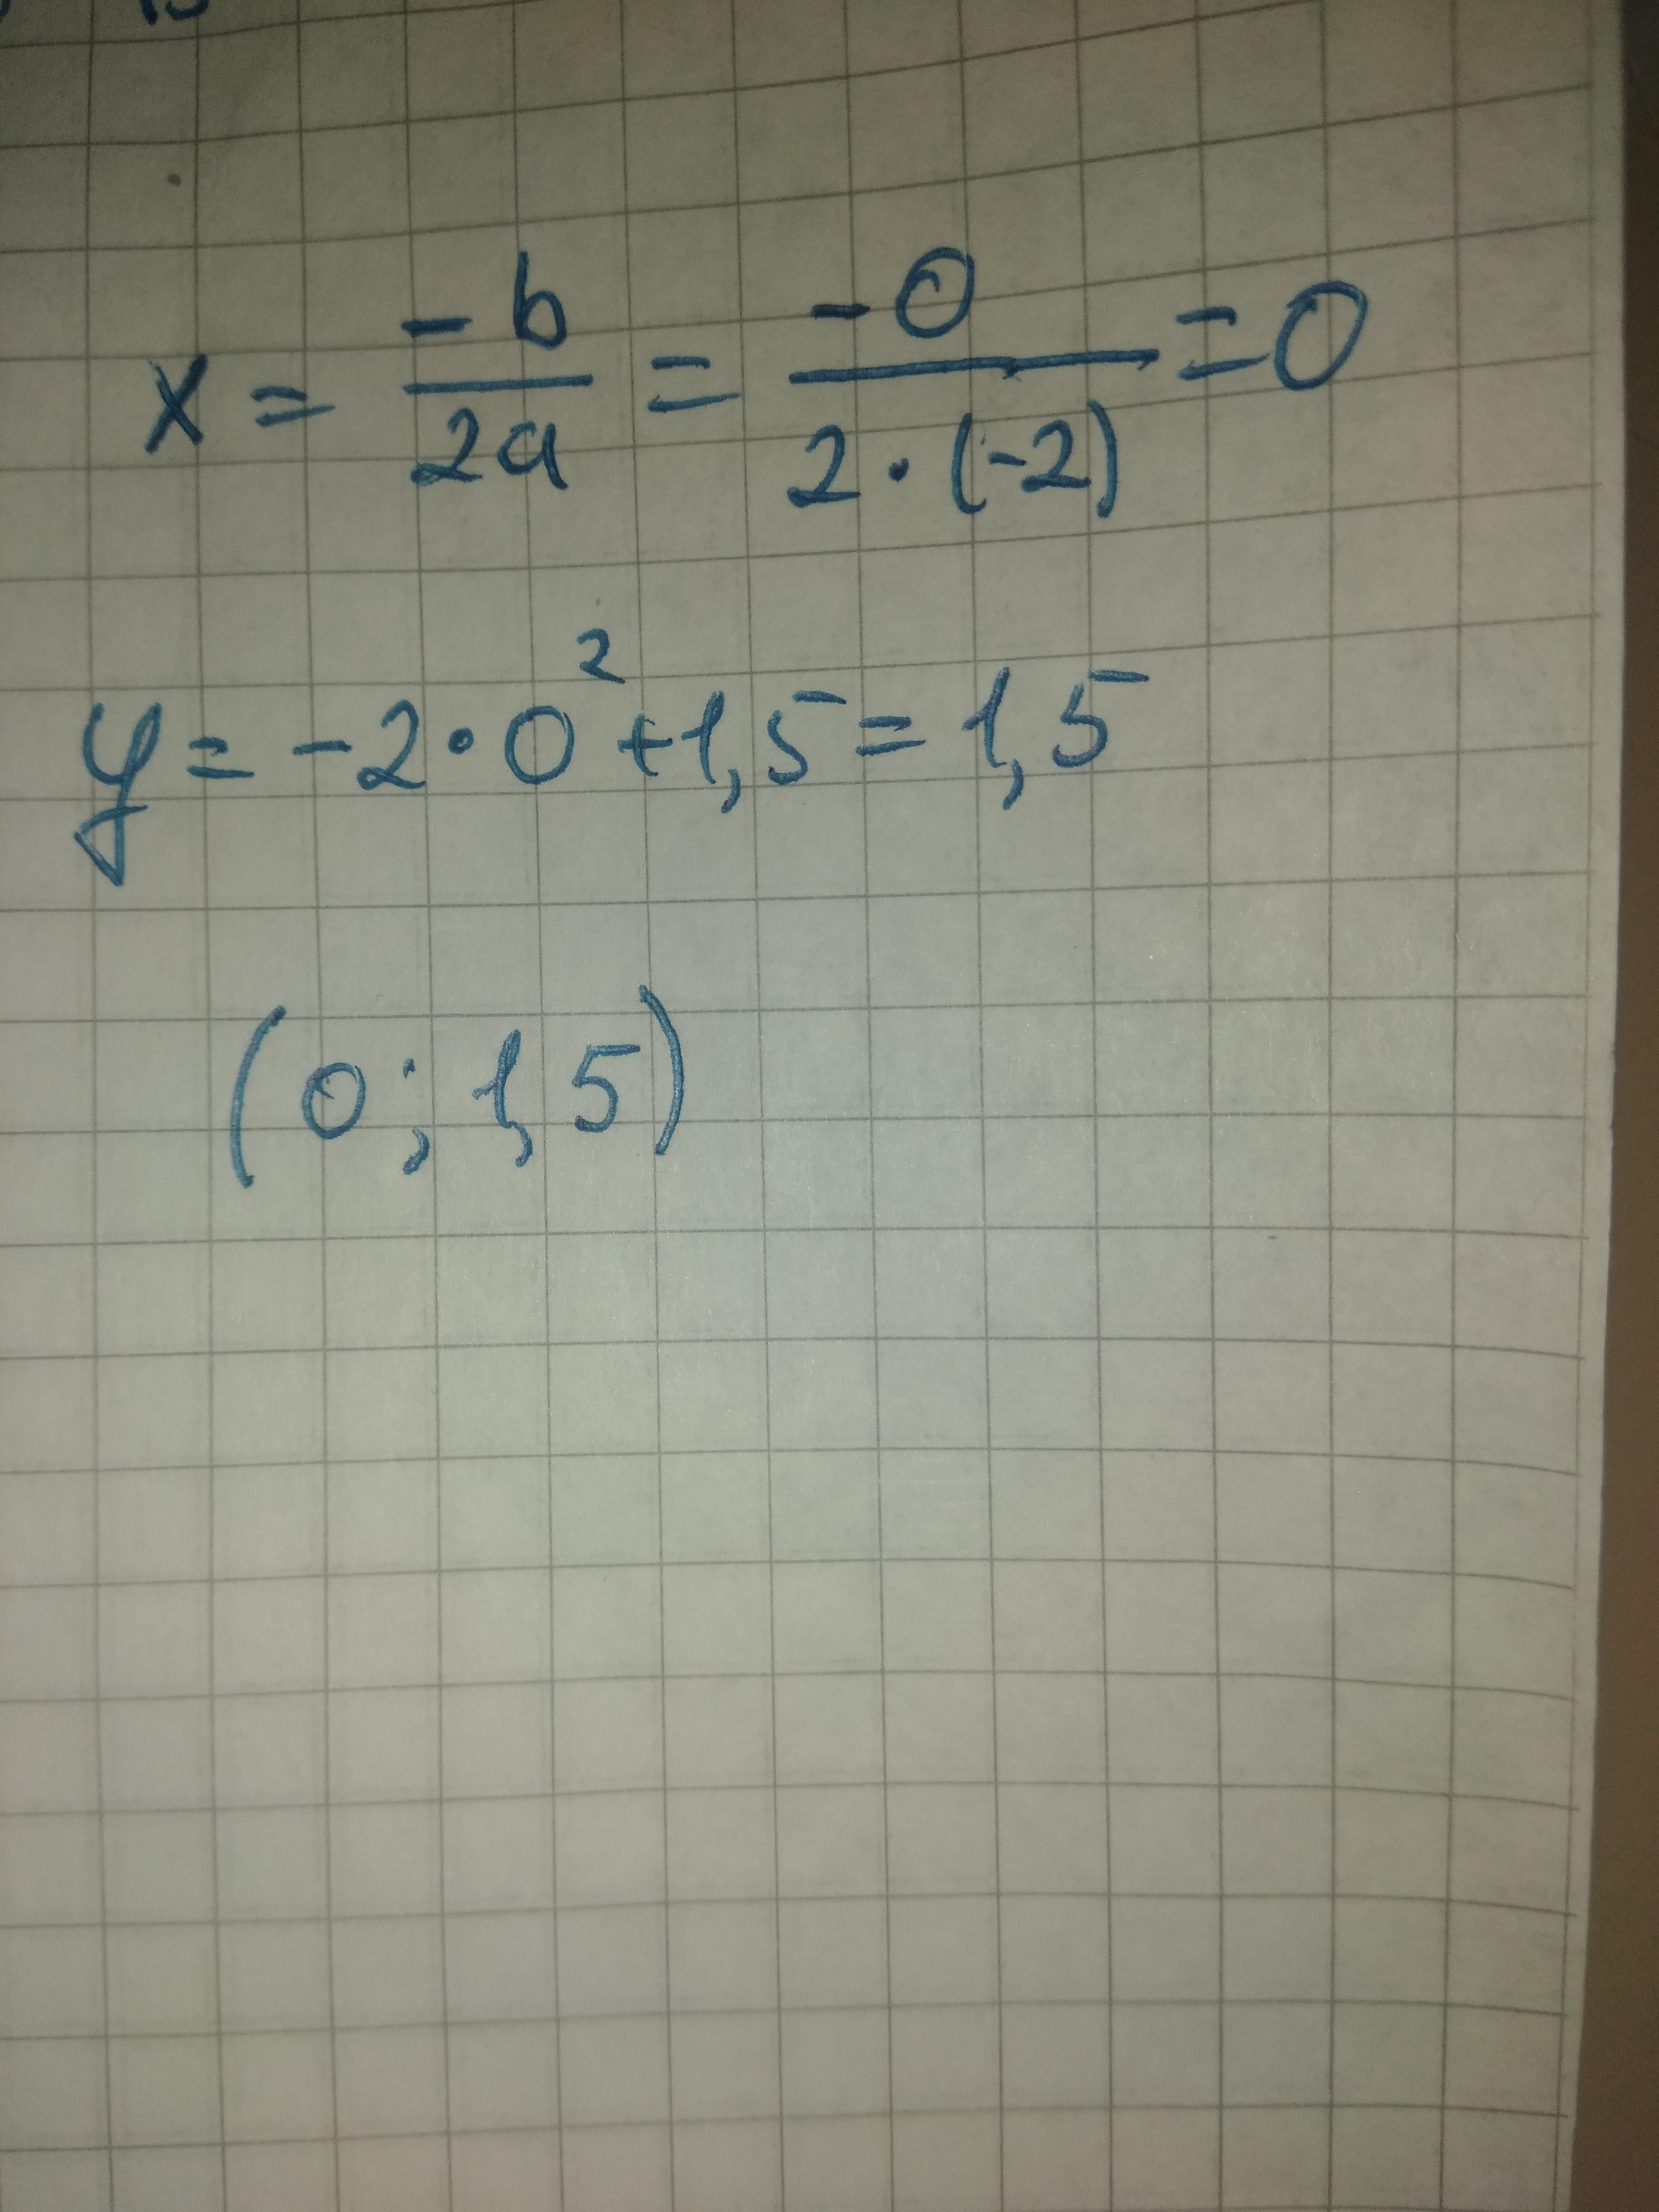 x = -b/2a = -0/2·(-2) = 0
y = -2·0² + 1,5 = 1,5
(0; 1,5)